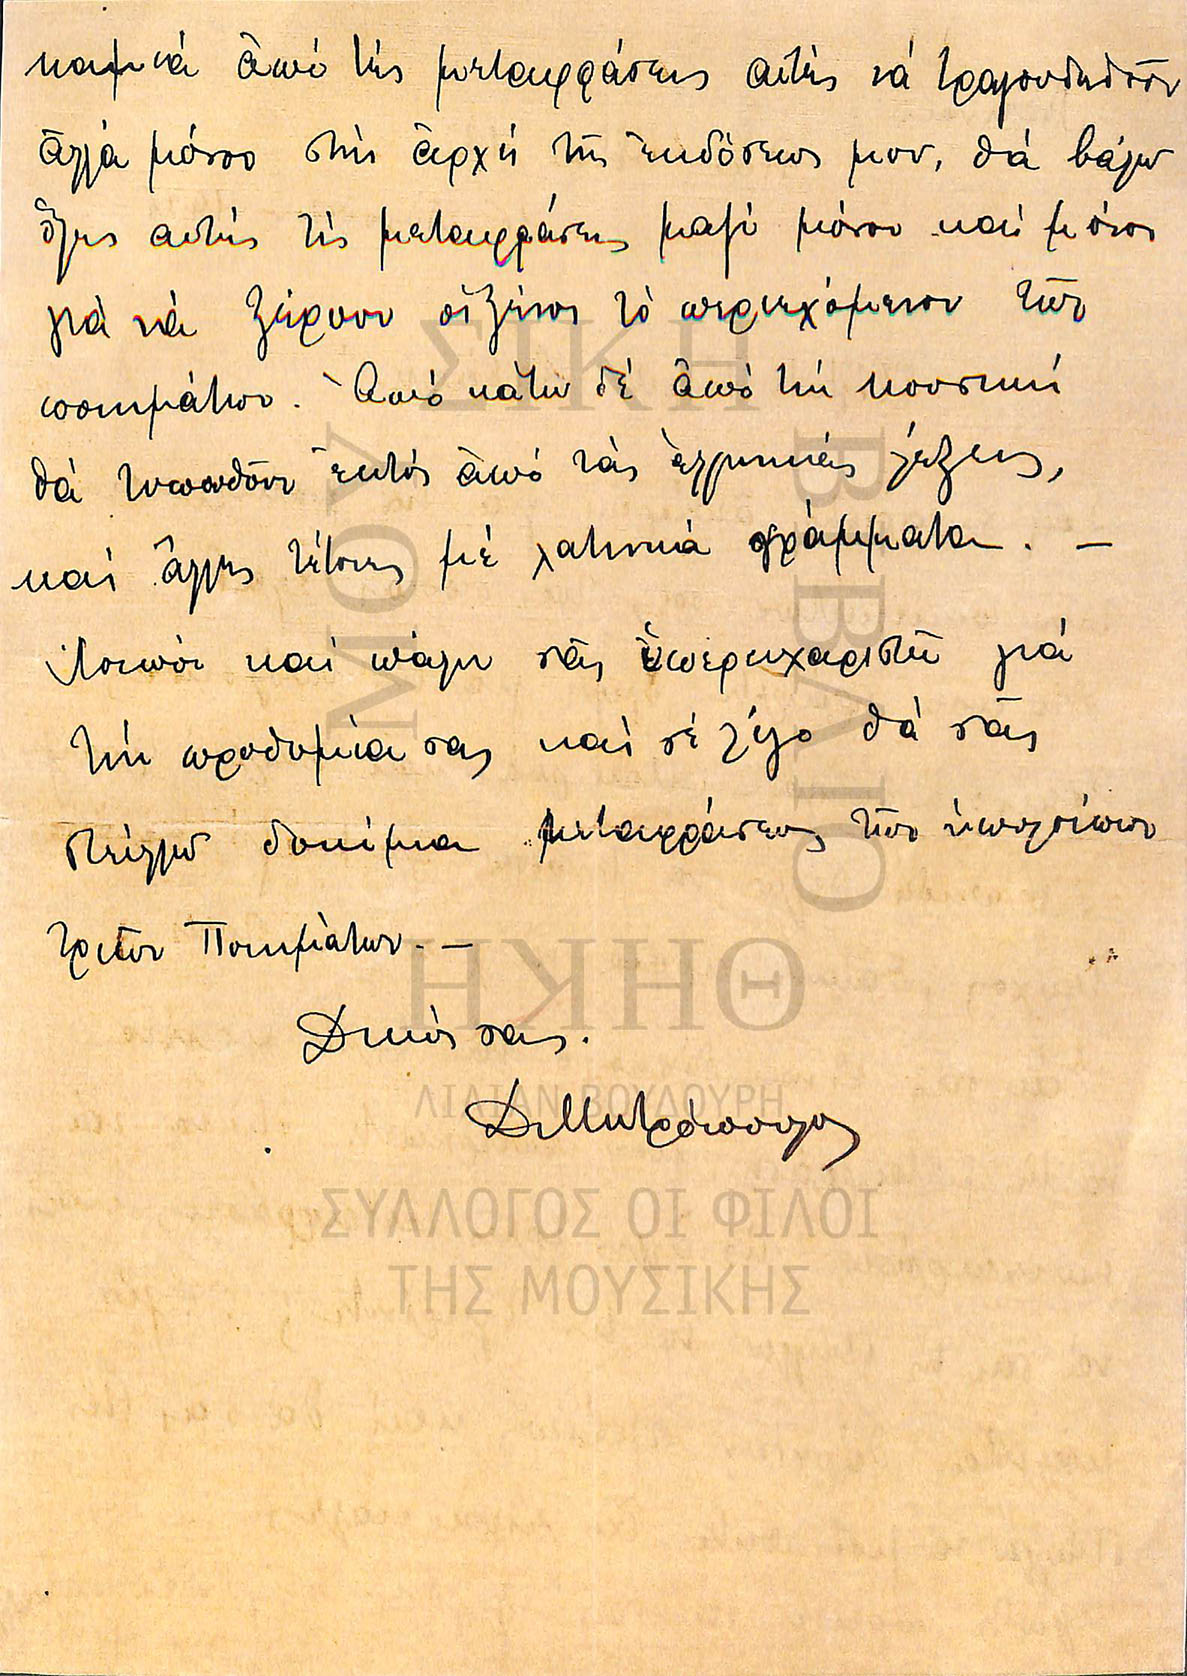 καμιά ἀπό τές μεταφράσεις αὐτές νά τραγουδηθοῦν
ἀλλά μόνον στήν ἀρχή τῆς ἐκδόσεώς μου, θά βάλω
ὅλες αὐτές τίς μεταφράσεις μαζί μόνον καί μόνον
γιά νά ξέρουν οἱ ξένοι τό περιεχόμενον τῶν
ποιημάτων. Ἀπό κάτω δέ ἀπό τήν μουσική
θά τυπωθοῦν ἐκτός ἀπό τάς ἑλληνικάς λέξεις,
καί ἄλλες τέτοιες μέ λατινικά γράμματα. —
Λοιπόν καί πάλιν σᾶς ὑπερευχαριστῶ γιά
τήν προθυμία σας καί σέ λίγο θά σᾶς
στείλω δοκίμια μεταφράσεως τῶν ὑπολοίπων
τριῶν Ποιημάτων. —
Δικός σας.
ΔΜητρόπουλος
ΜΟΥΣΙΚΗ
ΒΙΒΛΙΟΘΗΚΗ
ΛΙΛΙΑΝ ΒΟΥΔΟΥΡΗ
ΣΥΛΛΟΓΟΣ ΟΙ ΦΙΛΟΙ
ΤΗΣ ΜΟΥΣΙΚΗΣ